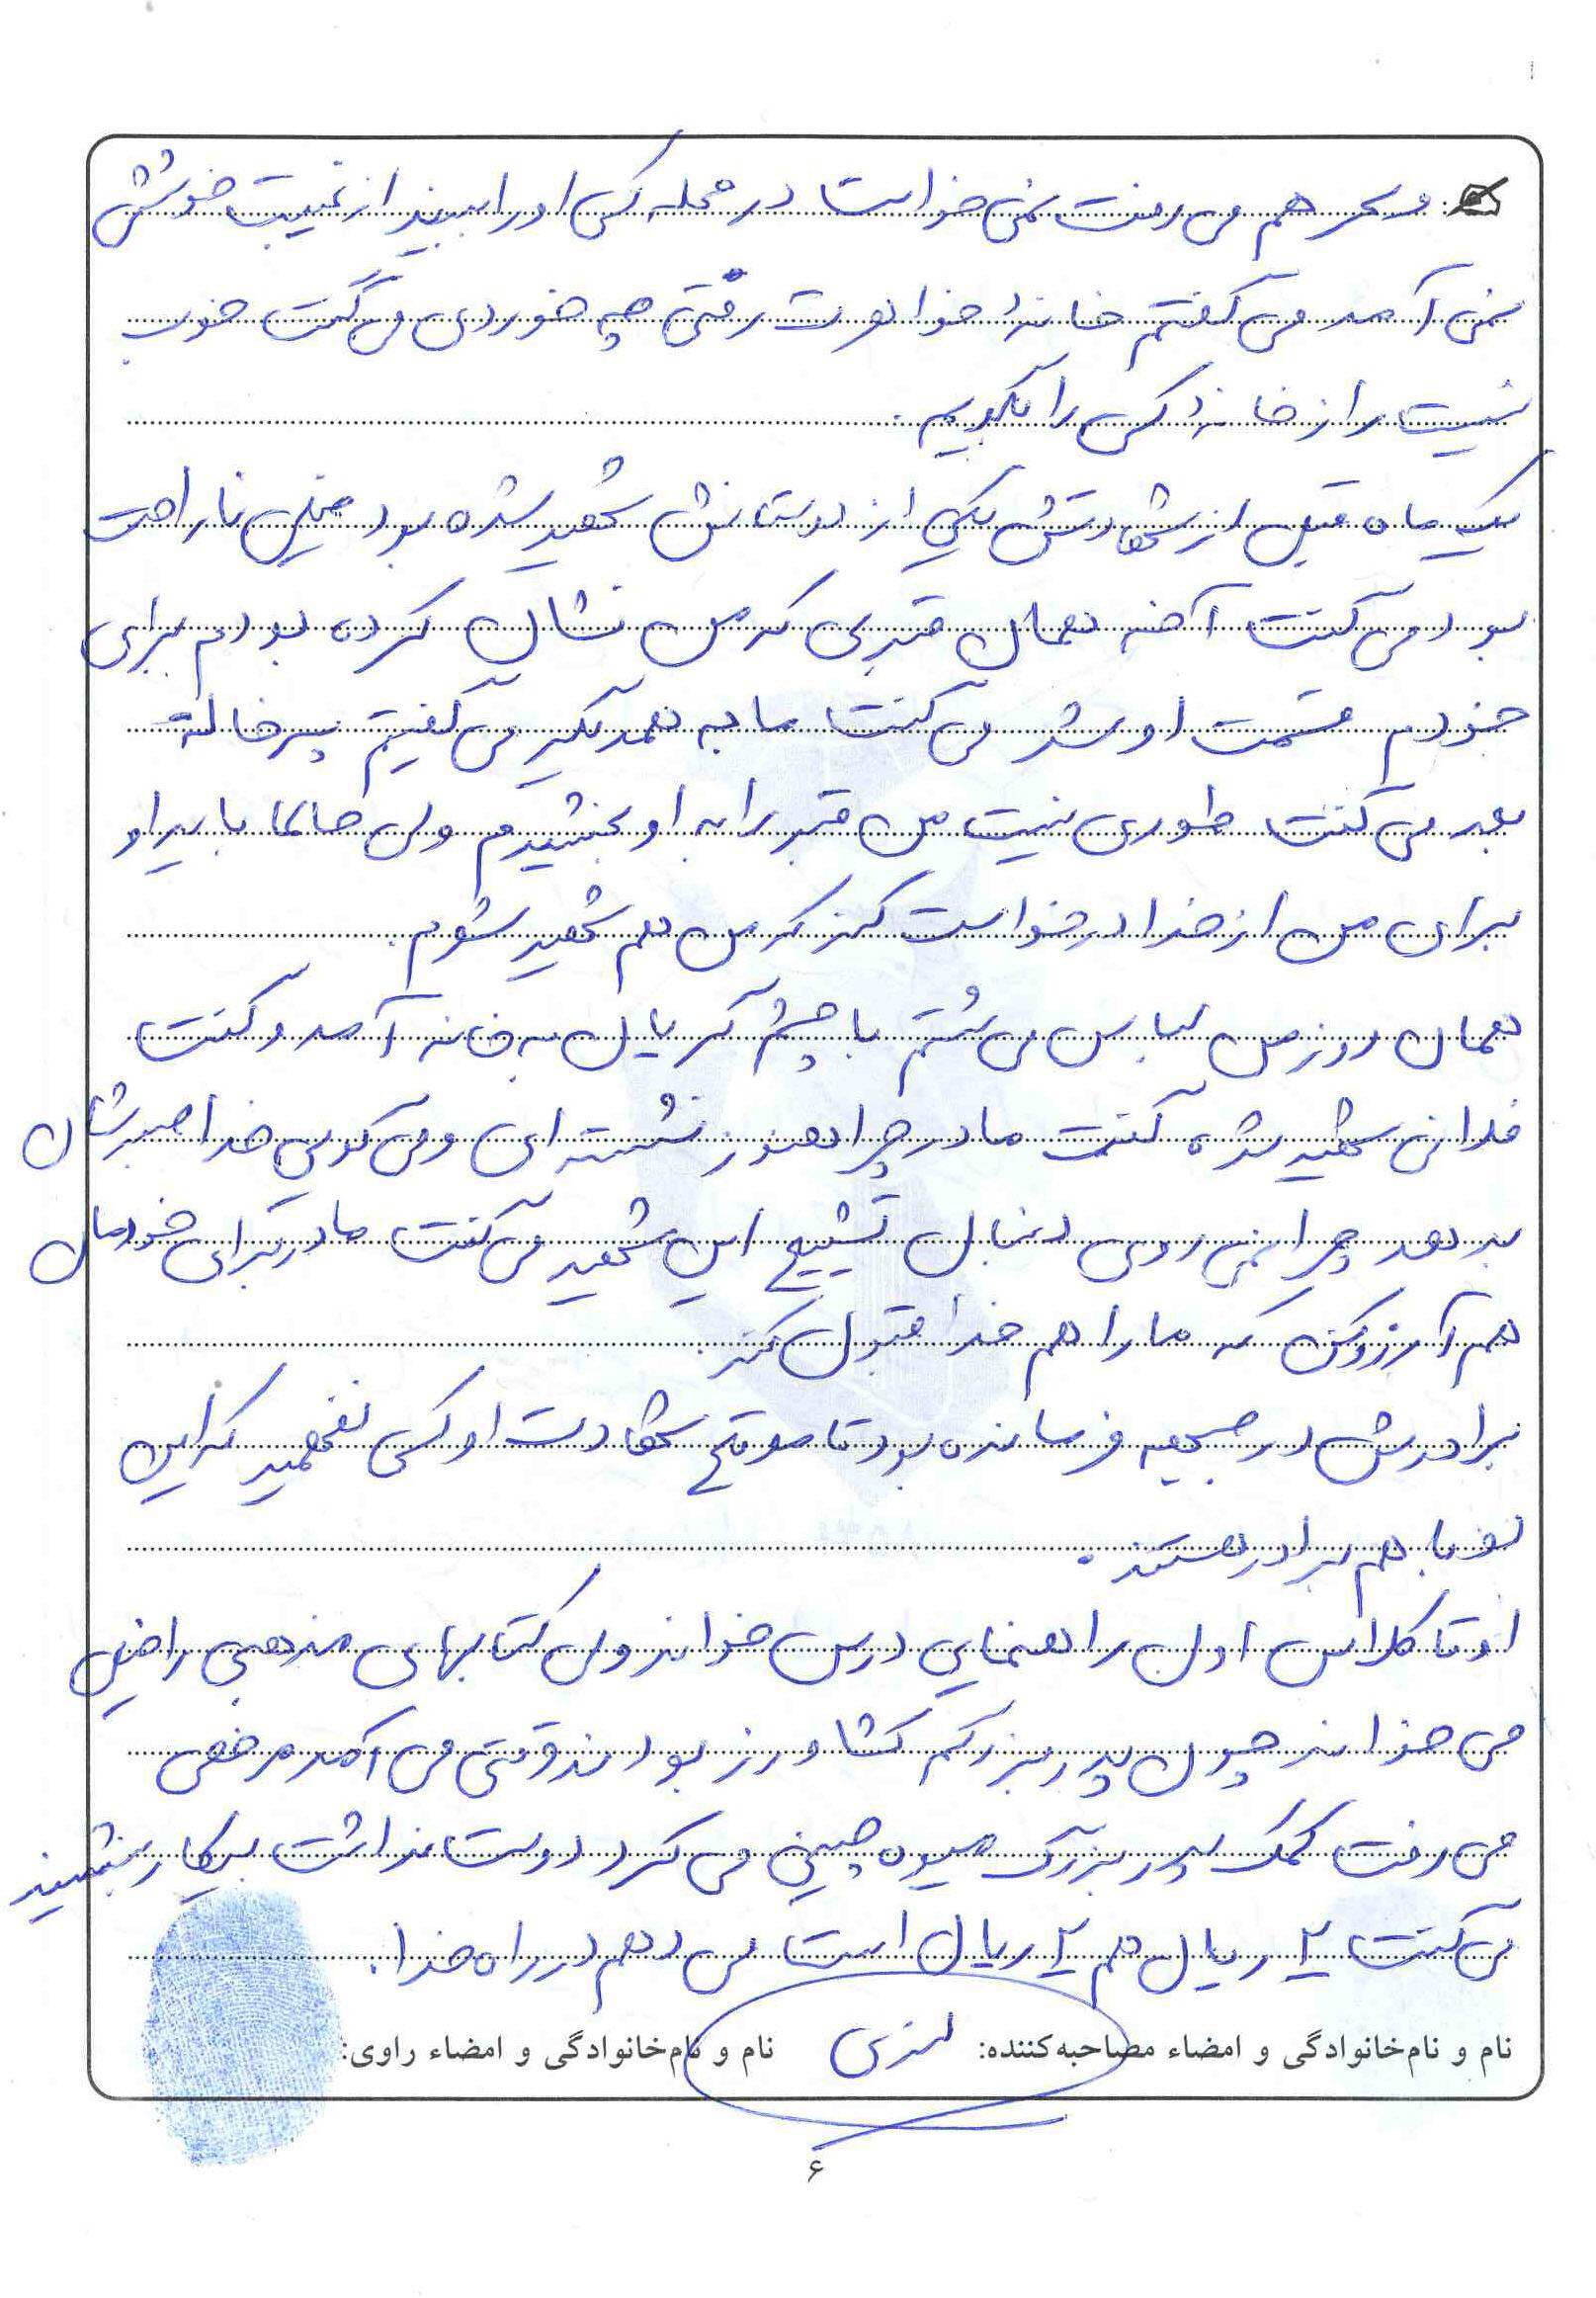 و سحر هم می رفت نمی خواست در محله کسی او را ببیند از غیبت خوشش
نمی آمد می گفتم خانهٔ خواهرت رفتی چه خوردی می گفت خوب
نیست راز خانهٔ کسی را بگویم.
یک ماه قبل از شهادتش یکی از دوستانش شهید شده بود خیلی ناراحت
بود می گفت آخه همان قبری که من نشان کرده بودم برای
خودم قسمت او شد می گفت ما به همدیگر می گفتیم پسرخاله
بعد می گفت طوری نیست من قبر را به او بخشیدم ولی حالا باید او
برای من از خدا درخواست کند که من هم شهید شوم.
همان روز من لباس می شُستم با چشم گریان به خانه آمد و گفت
فلانی شهید شده گفت مادر چرا هنوز نشسته ای و می گویی خدا صبرشان
بدهد چرا نمی روی دنبال تشییع این شهید می گفت مادر برای خودمان
هم آرزو کن که ما را هم خدا قبول کند.
برادرش در جبهه فرمانده بود تا موقع شهادت او کسی نفهمید که این
دو با هم برادر هستند.
او تا کلاس اول راهنمایی درس خواند ولی کتابهای مذهبی را خیلی
می خواند چون پدربزرگم کشاورز بودند وقتی می آمد مرخصی
می رفت کمک پدربزرگ میوه چینی می کرد دوست نداشت بیکار بنشیند
می گفت ۲ ریال هم ۲ ریال است می دهم در راه خدا.
نام و نام‌خانوادگی و امضاء مصاحبه‌کننده: نام و نام‌خانوادگی و امضاء راوی:
۶